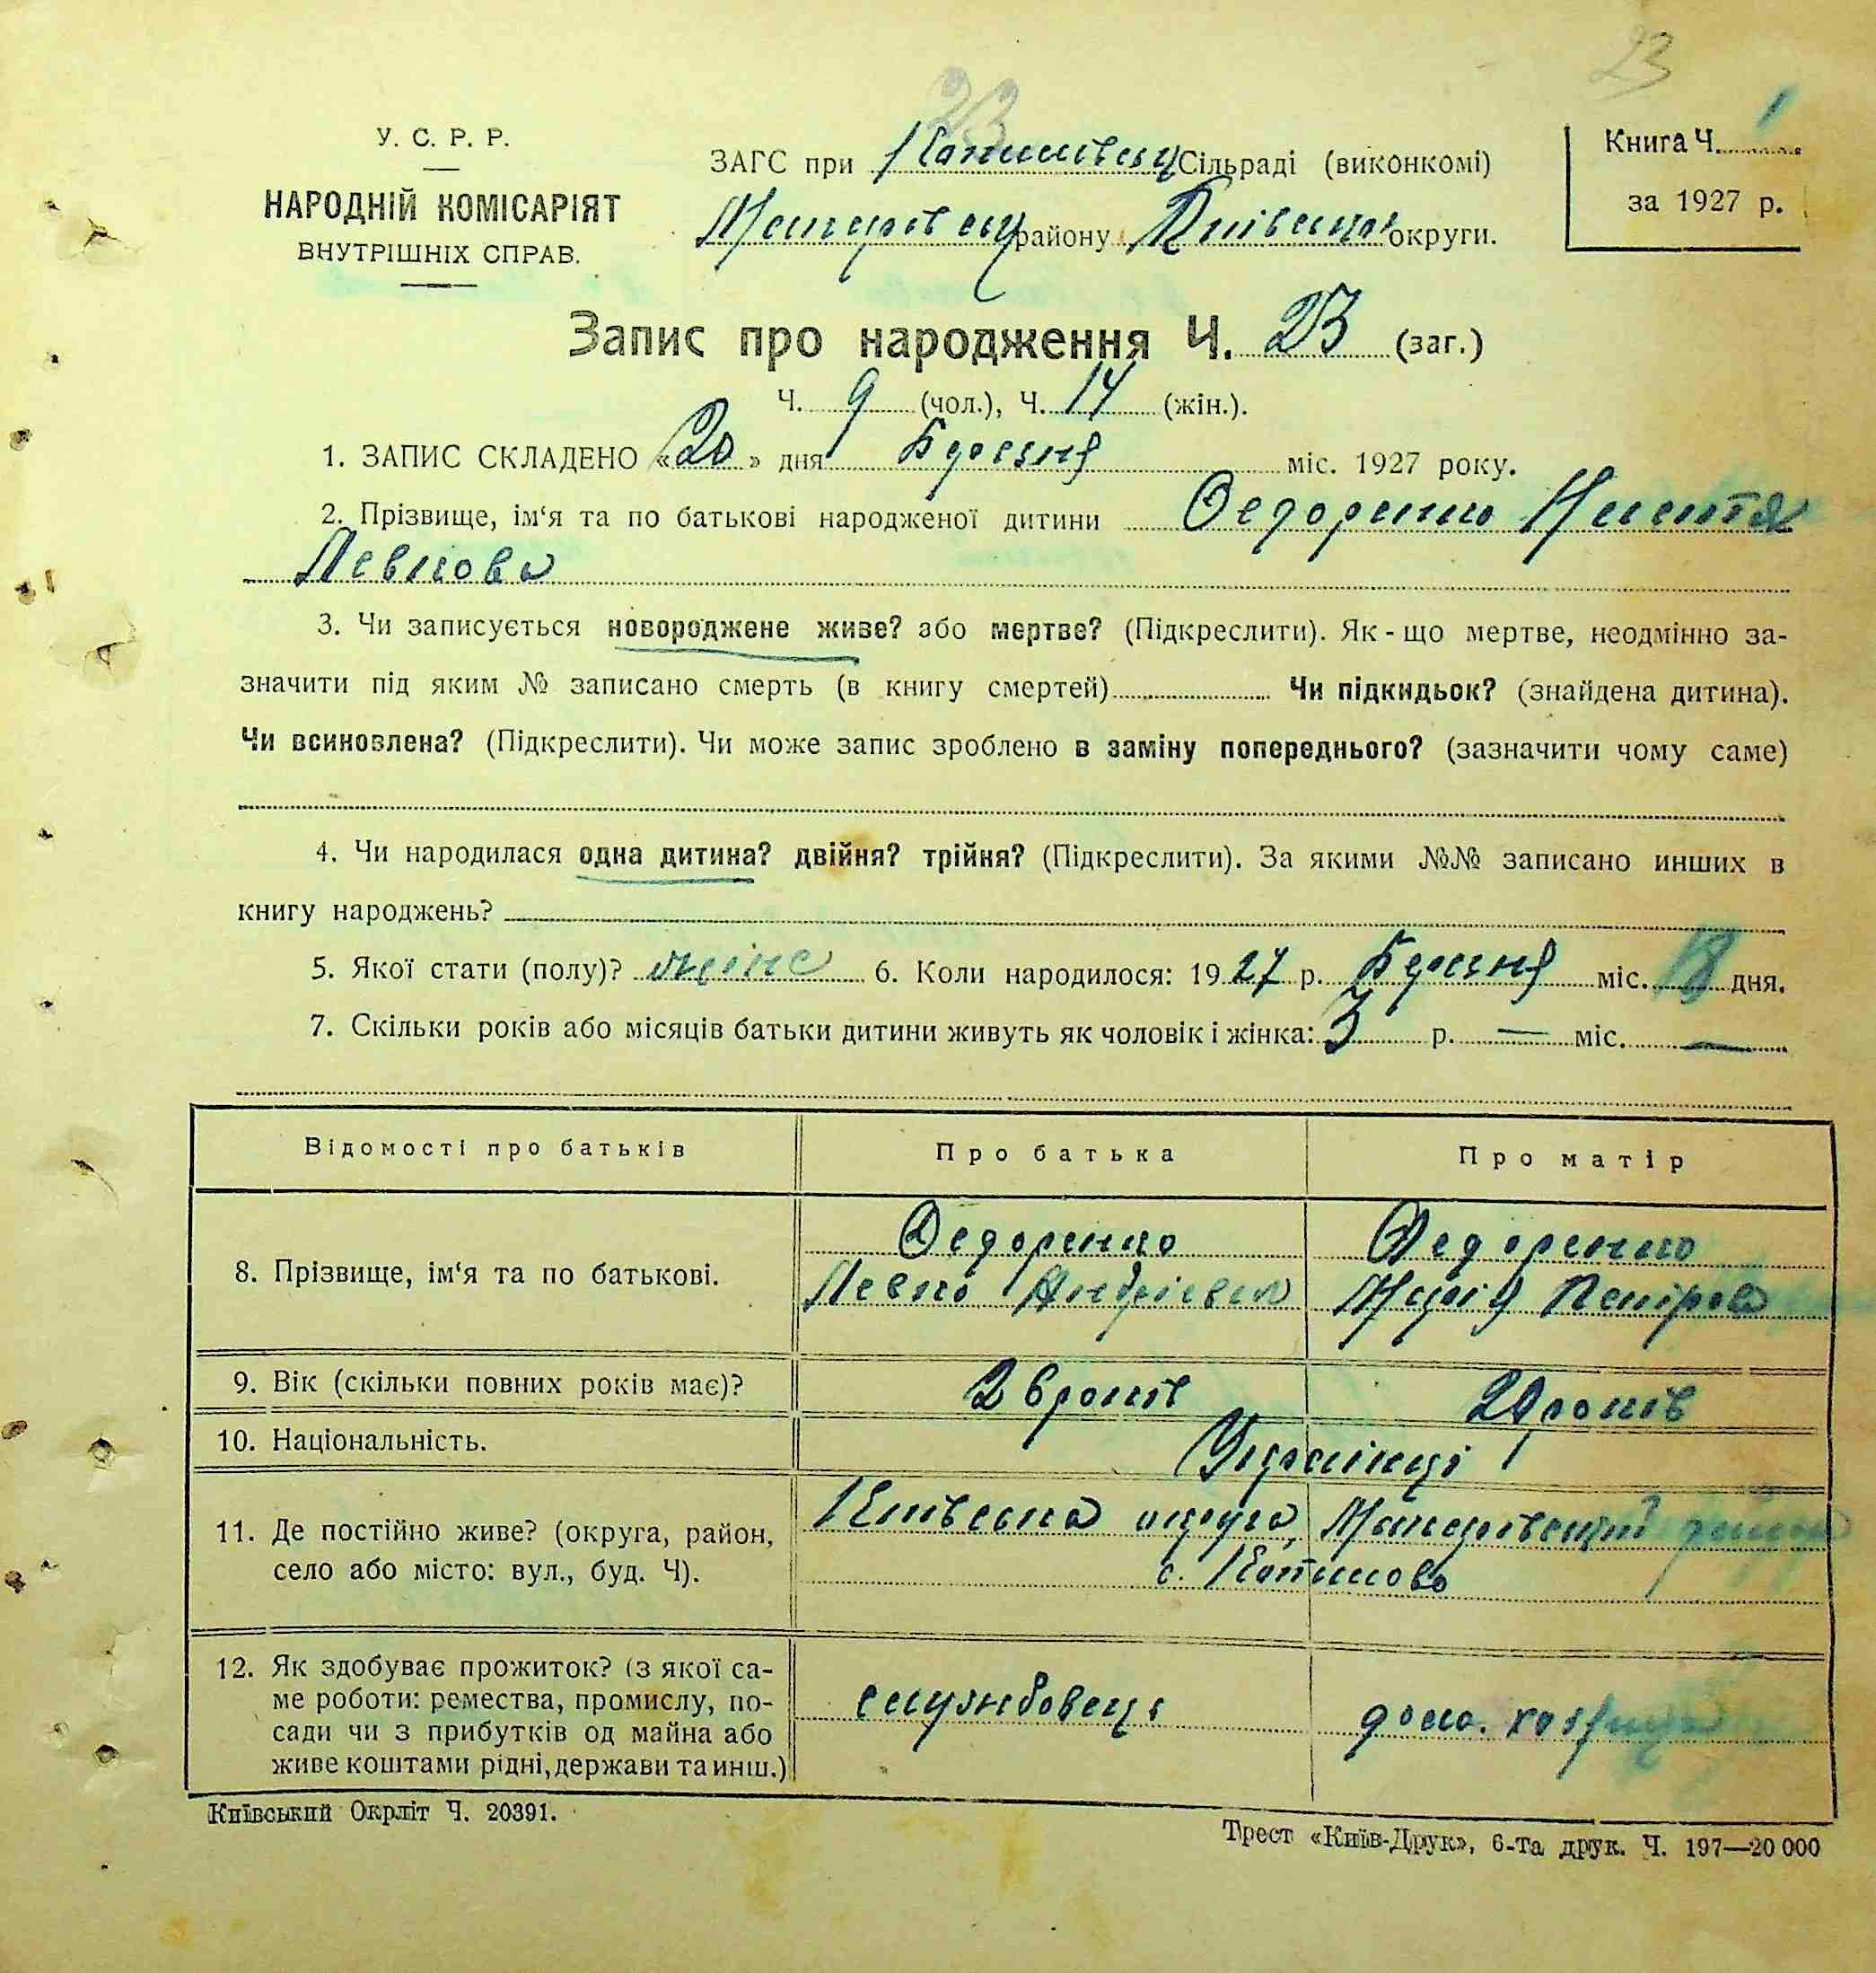 23
23
У. С. Р. Р.
НАРОДНІЙ КОМІСАРІЯТ
ВНУТРІШНІХ СПРАВ.
ЗАГС при Сільраді (виконкомі)
району округи.
Книга Ч. 1
за 1927 р.
Запис про народження Ч. 23 (заг.)
Ч. 9 (чол.), Ч. 14 (жін.).
1. ЗАПИС СКЛАДЕНО «20» дня Березня міс. 1927 року.
2. Прізвище, ім‘я та по батькові народженої дитини Федоренко
Левкова
3. Чи записується новороджене живе? або мертве? (Підкреслити). Як-що мертве, неодмінно за-
значити під яким № записано смерть (в книгу смертей) Чи підкидьок? (знайдена дитина).
Чи всиновлена? (Підкреслити). Чи може запис зроблено в заміну попереднього? (зазначити чому саме)
4. Чи народилася одна дитина? двійня? трійня? (Підкреслити). За якими №№ записано инших в
книгу народжень?
5. Якої стати (полу)? жіноч 6. Коли народилося: 1927 р. Березня міс. 18 дня.
7. Скільки років або місяців батьки дитини живуть як чоловік і жінка: 3 р. — міс. —
Відомості про батьків Про батька Про матір
8. Прізвище, ім‘я та по батькові.
Федоренко Федоренко
Левко Андрієвич Марія Петрова
9. Вік (скільки повних років має)? 26 років років
10. Національність. Українці
11. Де постійно живе? (округа, район,
село або місто: вул., буд. Ч).
Київська округа, Макарівський район
с. Копилово
12. Як здобуває прожиток? (з якої са-
ме роботи: ремества, промислу, по-
сади чи з прибутків од майна або
живе коштами рідні, держави та инш.)
службовець дом.
Київський Окрліт Ч. 20391.
Трест «Київ-Друк», 6-та друк. Ч. 197—20 000